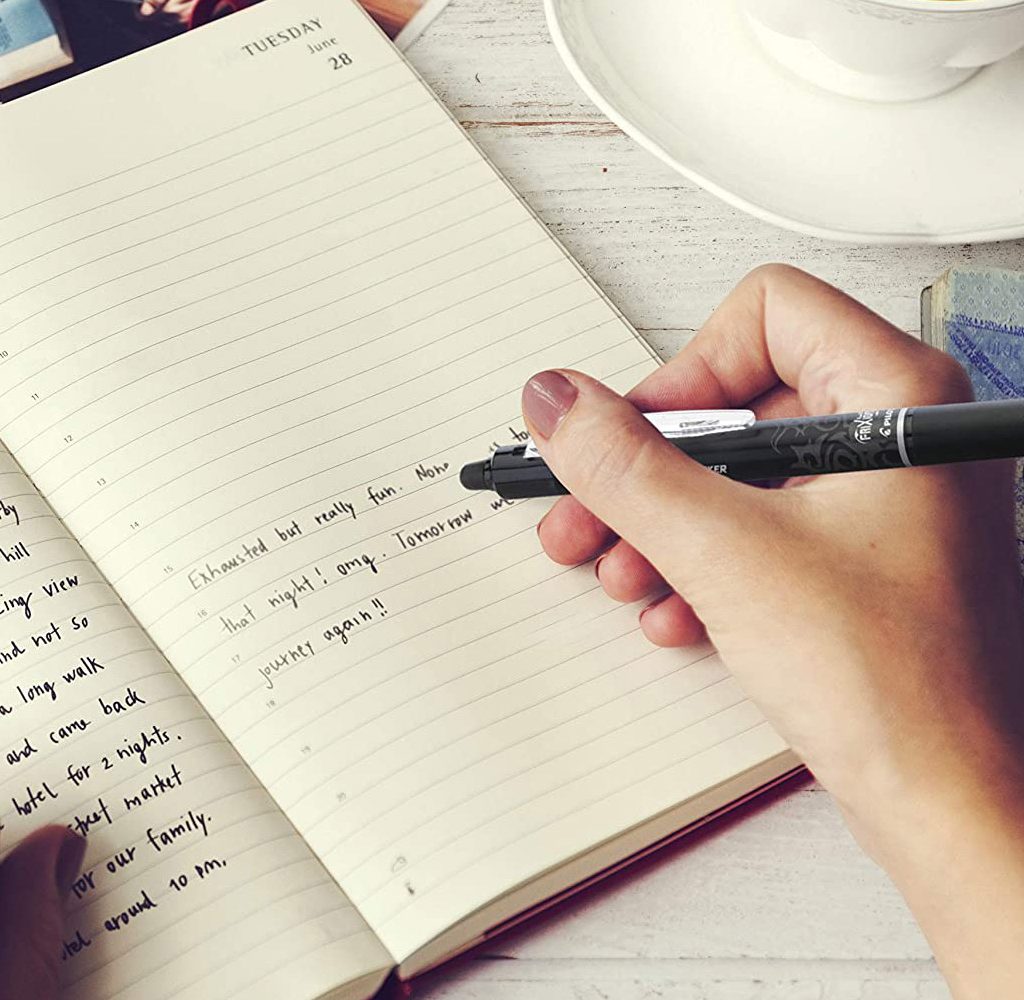 TUESDAY
June
28
10
11
12
13
14
15
16
17
18
19
20
Exhausted but really fun. None
that night! omg. Tomorrow we
journey again!!
hill
view
and not so
a long walk
and came back
hotel for 2 nights.
street market
for our family.
around 10 pm.
FRIXION
PILOT